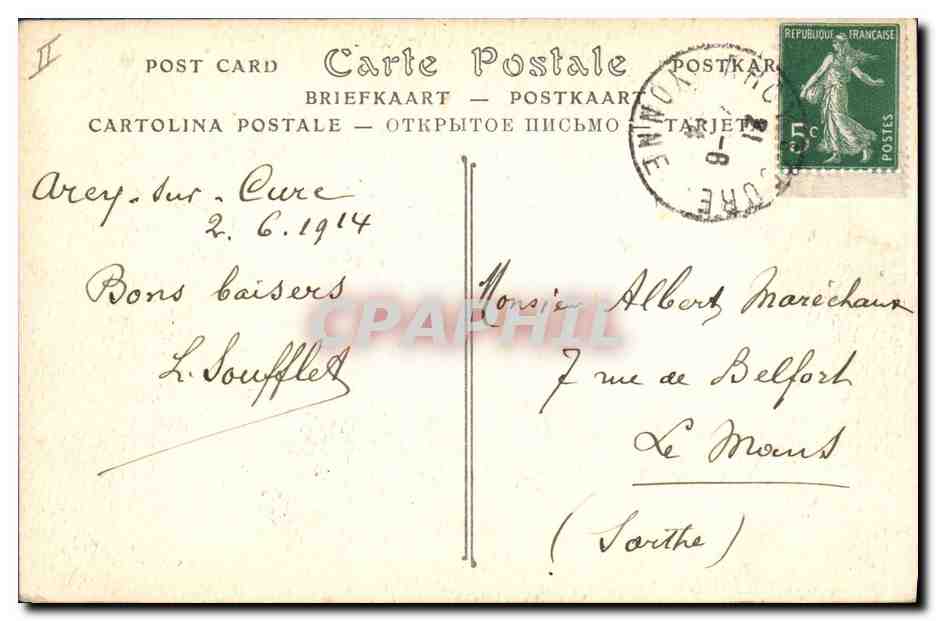 II
POST CARD Carte Postale POSTKAR
BRIEFKAART — POSTKAART
CARTOLINA POSTALE — ОТКРЫТОЕ ПИСЬМО — TARJETA
REPUBLIQUE FRANÇAISE
5c
POSTES
YONNE
CURE
21
2-6
Arcy-sur-Cure
2.6.1914
Bons baisers
L. Soufflet
Monsier Albert Maréchaux
7 rue de Belfort
Le Mans
(Sarthe)
CPAPHIL